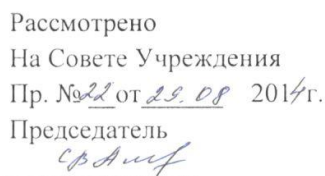 Рассмотрено
На Совете Учреждения
Пр. №22 от 29.08 2014г.
Председатель